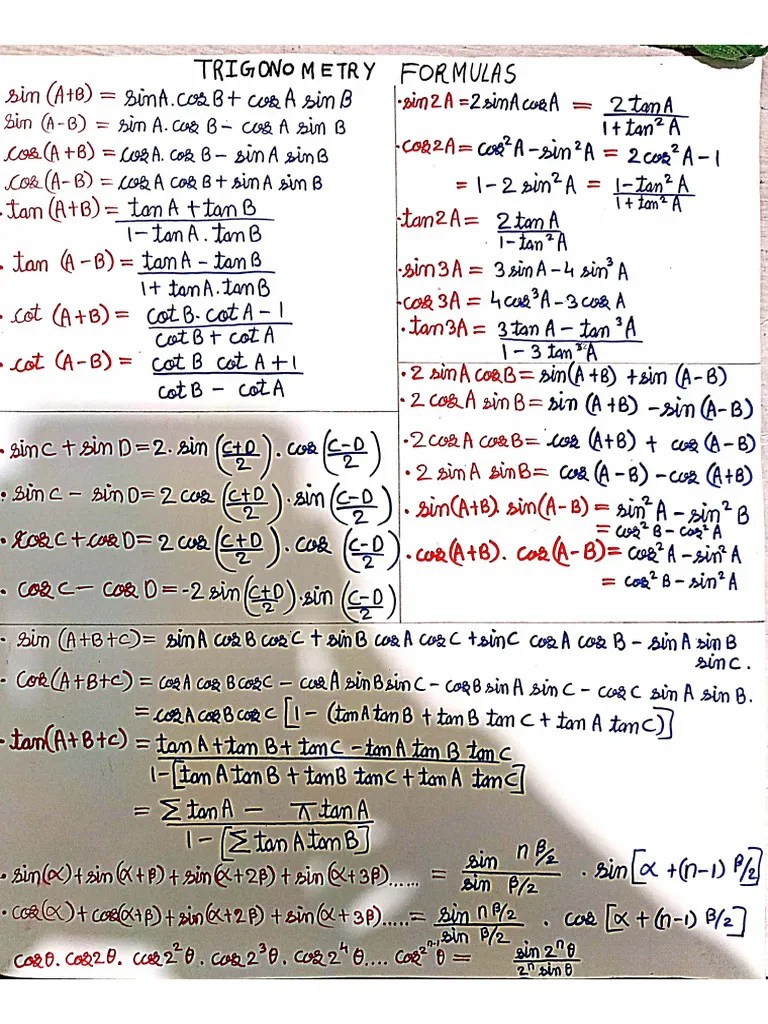 TRIGONOMETRY FORMULAS
sin (A+B) = sinA.cosB + cosA sinB
sin (A-B) = sinA.cosB - cosA sinB
cos(A+B) = cosA.cosB - sinA sinB
cos(A-B) = cosA cosB + sinA sinB
• tan(A+B) = (tanA + tanB)/(1-tanA.tanB)
• tan (A-B) = (tanA - tanB)/(1+tanA.tanB)
• cot (A+B) = (cotB.cotA-1)/(cotB + cotA)
• cot (A-B) = (cotB cotA+1)/(cotB - cotA)
• sin2A = 2sinAcosA = 2tanA/(1+tan²A)
• cos2A = cos²A-sin²A = 2cos²A-1
= 1-2sin²A = (1-tan²A)/(1+tan²A)
• tan2A = 2tanA/(1-tan²A)
• sin3A = 3sinA-4sin³A
• cos3A = 4cos³A-3cosA
• tan3A = (3tanA - tan³A)/(1-3tan³A)
• 2 sinA cosB = sin(A+B) + sin(A-B)
• 2 cosA sinB = sin(A+B) - sin(A-B)
• 2cosA cosB = cos(A+B) + cos(A-B)
• 2 sinA sinB = cos(A-B) - cos(A+B)
• sin(A+B). sin(A-B) = sin²A - sin²B
= cos²B - cos²A
• cos(A+B). cos(A-B) = cos²A - sin²A
= cos²B - sin²A
• sinC + sinD = 2.sin((C+D)/2).cos((C-D)/2)
• sinC - sinD = 2cos((C+D)/2).sin((C-D)/2)
• cosC + cosD = 2cos((C+D)/2).cos((C-D)/2)
• cosC - cosD = -2sin((C+D)/2).sin((C-D)/2)
• sin(A+B+C) = sinA cosB cosC + sinB cosA cosC + sinC cosA cosB - sinA sinB
sinC.
• Cos(A+B+C) = cosA cosB cosC - cosA sinB sinC - cosB sinA sinC - cosC sinA sinB.
= cosA cosB cosC [1-(tanA tanB + tanB tanC + tanA tanC)]
• tan(A+B+C) = (tanA + tanB + tanC - tanA tanB tanC)/(1-[tanA tanB + tanB tanC + tanA tanC])
= (Σ tanA - π tanA)/(1-[Σ tanA tanB])
• sin(α)+sin(α+β)+sin(α+2β)+sin(α+3β)...... = (sin nβ/2)/(sin β/2) . sin[α+(n-1) β/2]
• cos(α)+cos(α+β)+sin(α+2β)+sin(α+3β)..... = (sin nβ/2)/(sin β/2) . cos[α+(n-1) β/2]
cosθ. cos2θ. cos2²θ. cos2³θ. cos2⁴θ.... cos2ⁿ⁻¹θ = sin2ⁿθ/(2ⁿ sinθ)